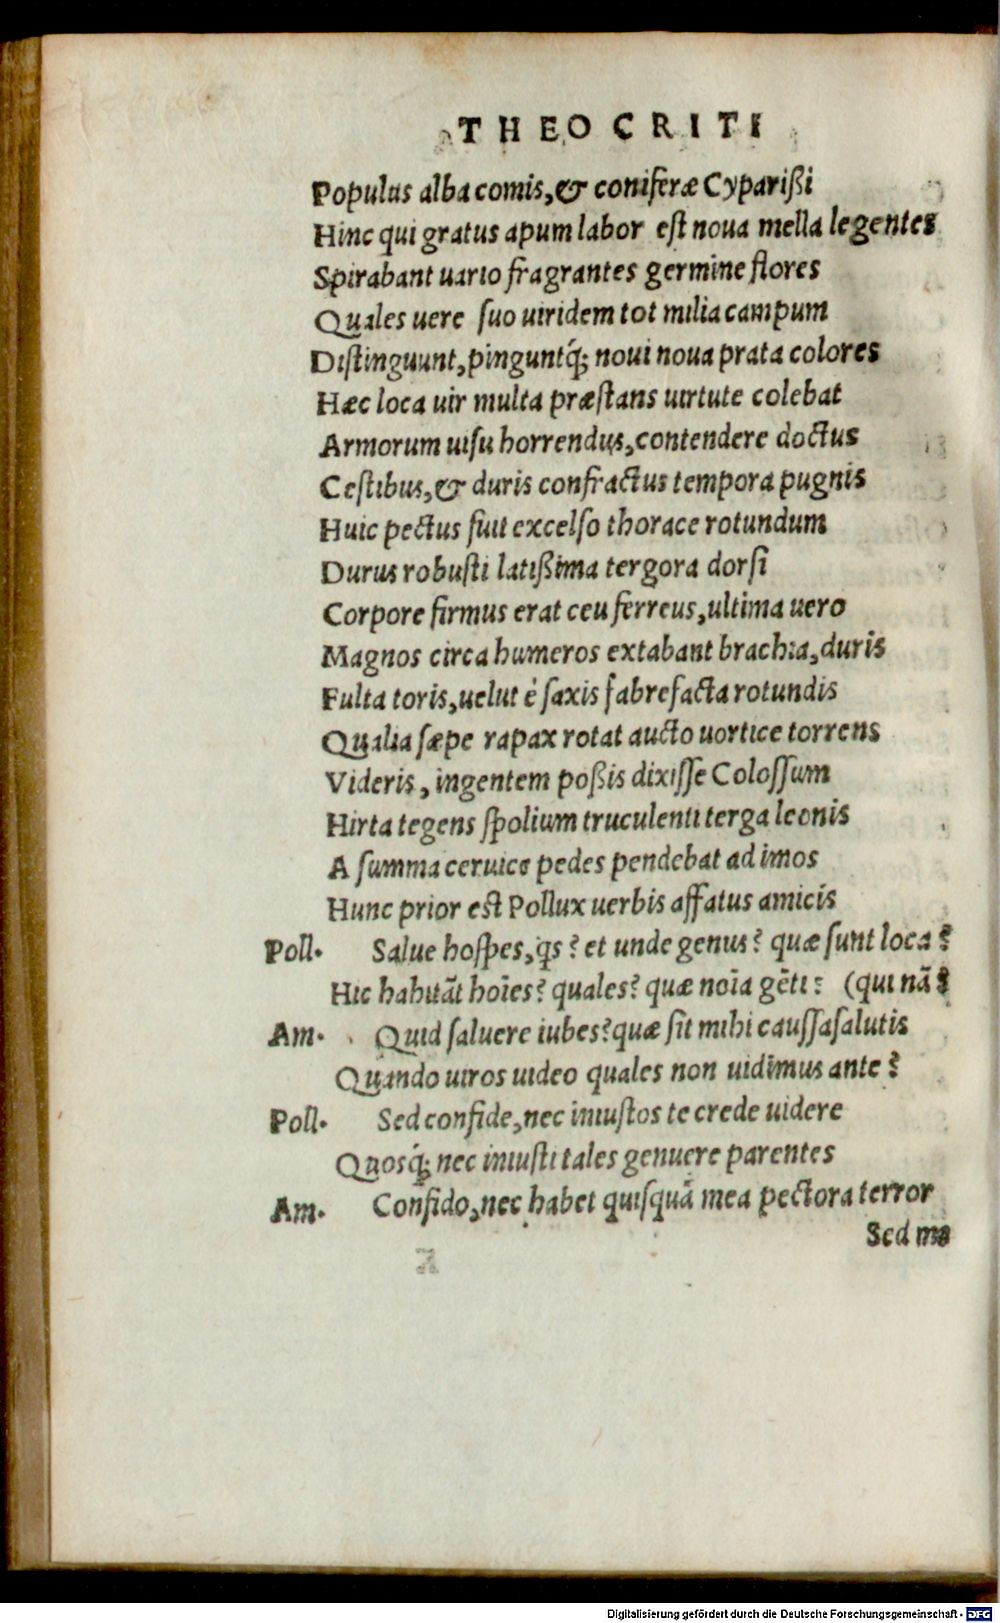 THEOCRITI
Populus alba comis, & coniferæ Cyparißi
Hinc qui gratus apum labor est noua mella legentes
Spirabant uario fragrantes germine flores
Quales uere suo uiridem tot milia campum
Distinguunt, pinguntq́; noui noua prata colores
Hæc loca uir multa præstans uirtute colebat
Armorum uisu horrendus, contendere doctus
Cestibus, & duris confractus tempora pugnis
Huic pectus fuit excelso thorace rotundum
Durus robusti latißima tergora dorsi
Corpore firmus erat ceu ferreus, ultima uero
Magnos circa humeros extabant brachia, duris
Fulta toris, uelut è saxis fabrefacta rotundis
Qualia sæpe rapax rotat aucto uortice torrens
Videris, ingentem poßis dixisse Colossum
Hirta tegens spolium truculenti terga leonis
A summa ceruice pedes pendebat ad imos
Hunc prior est Pollux uerbis affatus amicis
Poll. Salue hospes, qs? et unde genus? quæ sunt loca?
Hic habitāt hoīes? quales? quæ noīa gēti: (qui nā?
Am. Quid saluere iubes? quæ sit mihi caussa salutis
Quando uiros uideo quales non uidimus ante?
Poll. Sed confide, nec iniustos te crede uidere
Quosq́; nec iniusti tales genuere parentes
Am. Confido, nec habet quisquā mea pectora terror
Sed me
Digitalisierung gefördert durch die Deutsche Forschungsgemeinschaft - DFG